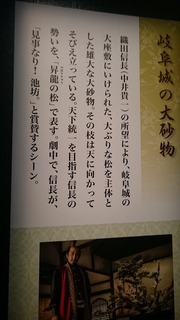 岐阜城の大砂物
織田信長(中井貴一)の所望により、岐阜城の
大座敷にいけられた、大ぶりな松を主体と
した雄大な大砂物。その枝は天に向かって
そびえ立っている。天下統一を目指す信長の
勢いを、「昇龍の松」で表す。劇中で、信長が、
「見事なり! 池坊。」と賞賛するシーン。